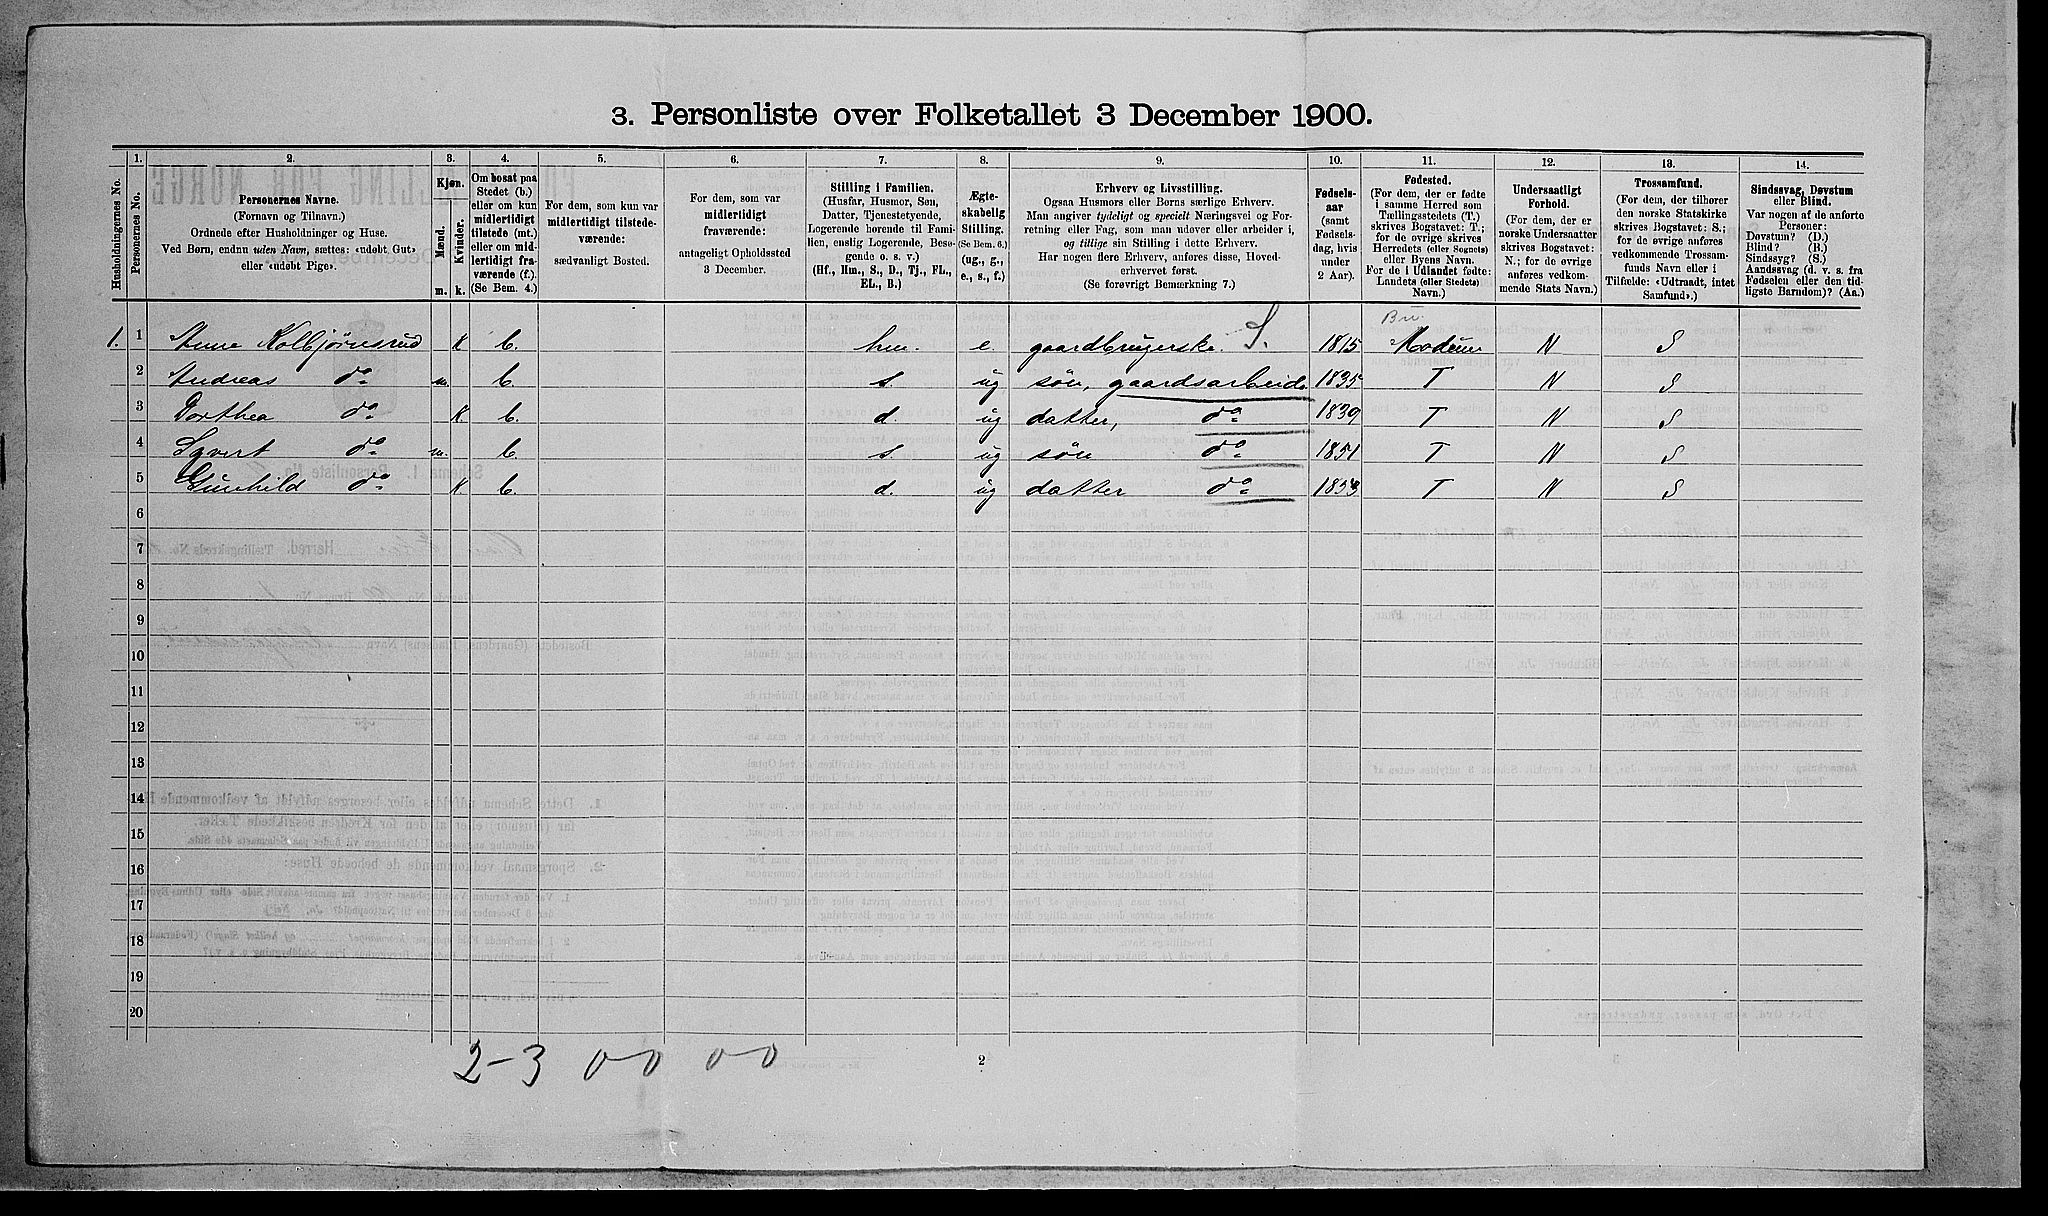 3. Personliste over Folketallet 3 December 1900.
Husholdningernes No.
1.
Personernes No.
2.
Personernes Navne.
(Fornavn og Tilnavn.)
Ordnede efter Husholdninger og Huse.
Ved Børn, endnu uden Navn, sættes: «udøbt Gut»
eller «udøbt Pige».
3.
Kjøn.
Mænd.
Kvinder.
m. k.
4.
Om bosat paa
Stedet (b.)
eller om kun
midlertidigt
tilstede (mt.)
eller om mid-
lertidigt fra-
værende (f.).
(Se Bem. 4.)
5.
For dem, som kun var
midlertidigt tilstede-
værende:
sædvanligt Bosted.
6.
For dem, som var
midlertidigt
fraværende:
antageligt Opholdssted
3 December.
7.
Stilling i Familien.
(Husfar, Husmor, Søn,
Datter, Tjenestetyende,
Logerende hørende til Fami-
lien, enslig Logerende, Besø-
gende o. s. v.)
(Hf., Hm., S., D., Tj., FL.,
EL., B.)
8.
Ægte-
skabelig
Stilling.
(Se Bem. 6.)
(ug., g.,
e., s., f.)
9.
Erhverv og Livsstilling.
Ogsaa Husmors eller Børns særlige Erhverv.
Man angiver tydeligt og specielt Næringsvei og For-
retning eller Fag, som man udøver eller arbeider i,
og tillige sin Stilling i dette Erhverv.
Har nogen flere Erhverv, anføres disse, Hoved-
erhvervet først.
(Se forøvrigt Bemærkning 7.)
10.
Fødsels-
aar
(samt
Fødsels-
dag, hvis
under
2 Aar).
11.
Fødested.
(For dem, der er fødte
i samme Herred som
Tællingsstedets (T.)
skrives Bogstavet: T.;
for de øvrige skrives
Herredets (eller Sognets)
eller Byens Navn.
For de i Udlandet fødte:
Landets (eller Stedets)
Navn.)
12.
Undersaatligt
Forhold.
(For dem, der er
norske Undersaatter
skrives Bogstavet:
N.; for de øvrige
anføres vedkom-
mende Stats Navn.)
13.
Trossamfund.
(For dem, der tilhører
den norske Statskirke
skrives Bogstavet: S.;
for de øvrige anføres
vedkommende Trossam-
funds Navn eller i
Tilfælde: «Udtraadt, intet
Samfund».)
14.
Sindssvag, Døvstum
eller Blind.
Var nogen af de anførte
Personer:
Døvstum? (D.)
Blind? (B.)
Sindssyg? (S.)
Aandssvag (d. v. s. fra
Fødselen eller den tid-
ligste Barndom)? (Aa.)
1. 1 Anne Kolbjørnsrud k b. hm. e. gaardbrugerske. S. 1815 Modum N S
2 Andreas do m. b. s. ug søn, gaardsarbeid. 1835 T N S
3 Dorthea do k. b. d. ug datter, do 1839 T N S
4 Syvert do m. b. s. ug søn do 1851 T N S
5 Gunhild do k b. d. ug datter do 1853 T N S
6
7
8
9
10
11
12
13
14
15
16
17
18
19
20
2-3 0 0 0 0
2